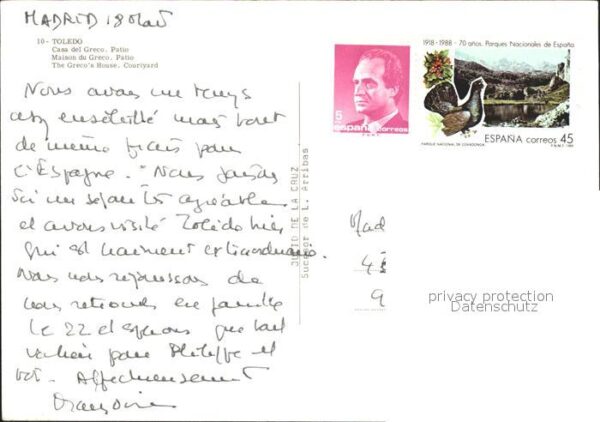 MADRID 18 Mai
10 - TOLEDO
Casa del Greco. Patio
Maison du Greco. Patio
The Greco's House. Couryard
Nous avons un temps
ensoleillé mais tout
de même frais pour
l'Espagne. Nous faisons
ici un séjour très agréable
et avons visité Toledo hier
qui est vraiment extraordinaire.
Nous nous réjouissons de
nous retrouver en famille
le 22 et espérons que tout
va bien pour Philippe et
toi. Affectueusement
Françoise
JULIO DE LA CRUZ
Sucesor de L. Arribas
5
españa correos
1918-1988 - 70 años. Parques Nacionales de España
ESPAÑA correos 45
PARQUE NACIONAL DE COVADONGA
F.N.M.T.
Mad
4
9
privacy protection
Datenschutz